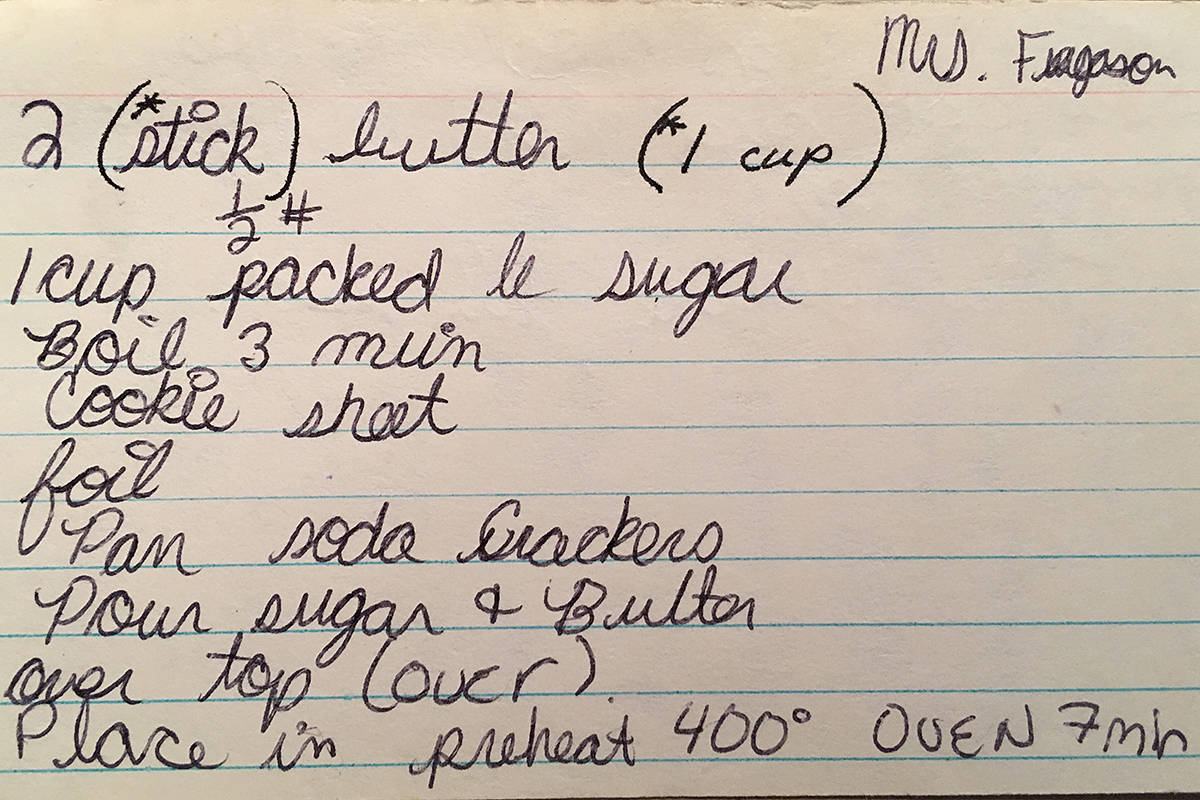 Mrs. Fragason
2 (*stick) butter (*1 cup)
½ #
1 cup packed b sugar
Boil 3 min
Cookie sheet
foil
Pan soda Crackers
Pour sugar & Butter
over top (over).
Place in preheat 400° OVEN 7 min